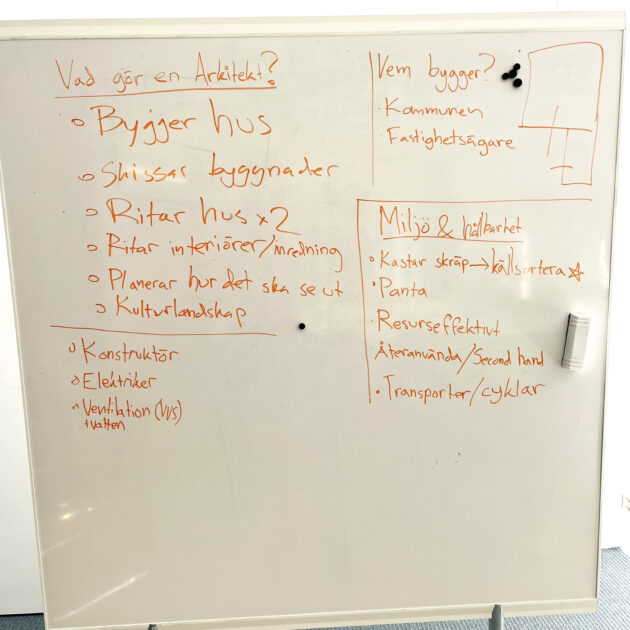 Vad gör en Arkitekt?
Bygger hus
Skissar byggnader
Ritar hus x2
Ritar interiörer/inredning
Planerar hur det ska se ut
Kulturlandskap
Konstruktör
Elektriker
Ventilation (VVS)
+vatten
Vem bygger?
Kommunen
Fastighetsägare
Miljö & hållbarhet
Kastar skräp→källsortera☆
Panta
Resurseffektivt
Återanvända/Second hand
Transporter/cyklar